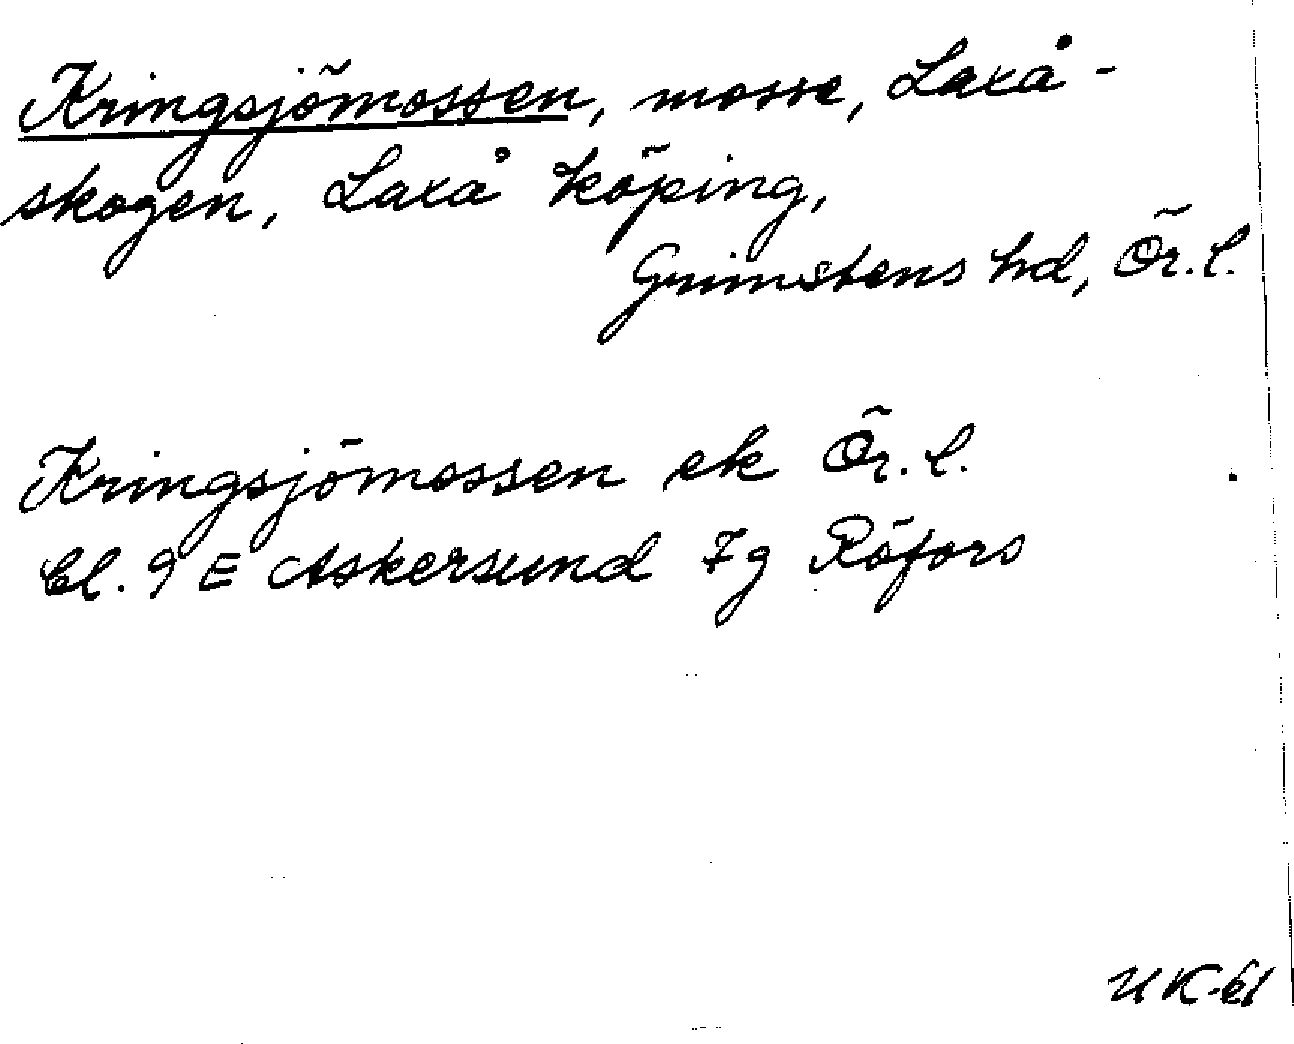 Kringsjömossen, mosse, Laxå-
skogen, Laxå köping,
Grimstens hd, Ör. l.
Kringsjömossen ek Ör. l.
bl. 9 E Askersund 7 g Röfors
UK-61